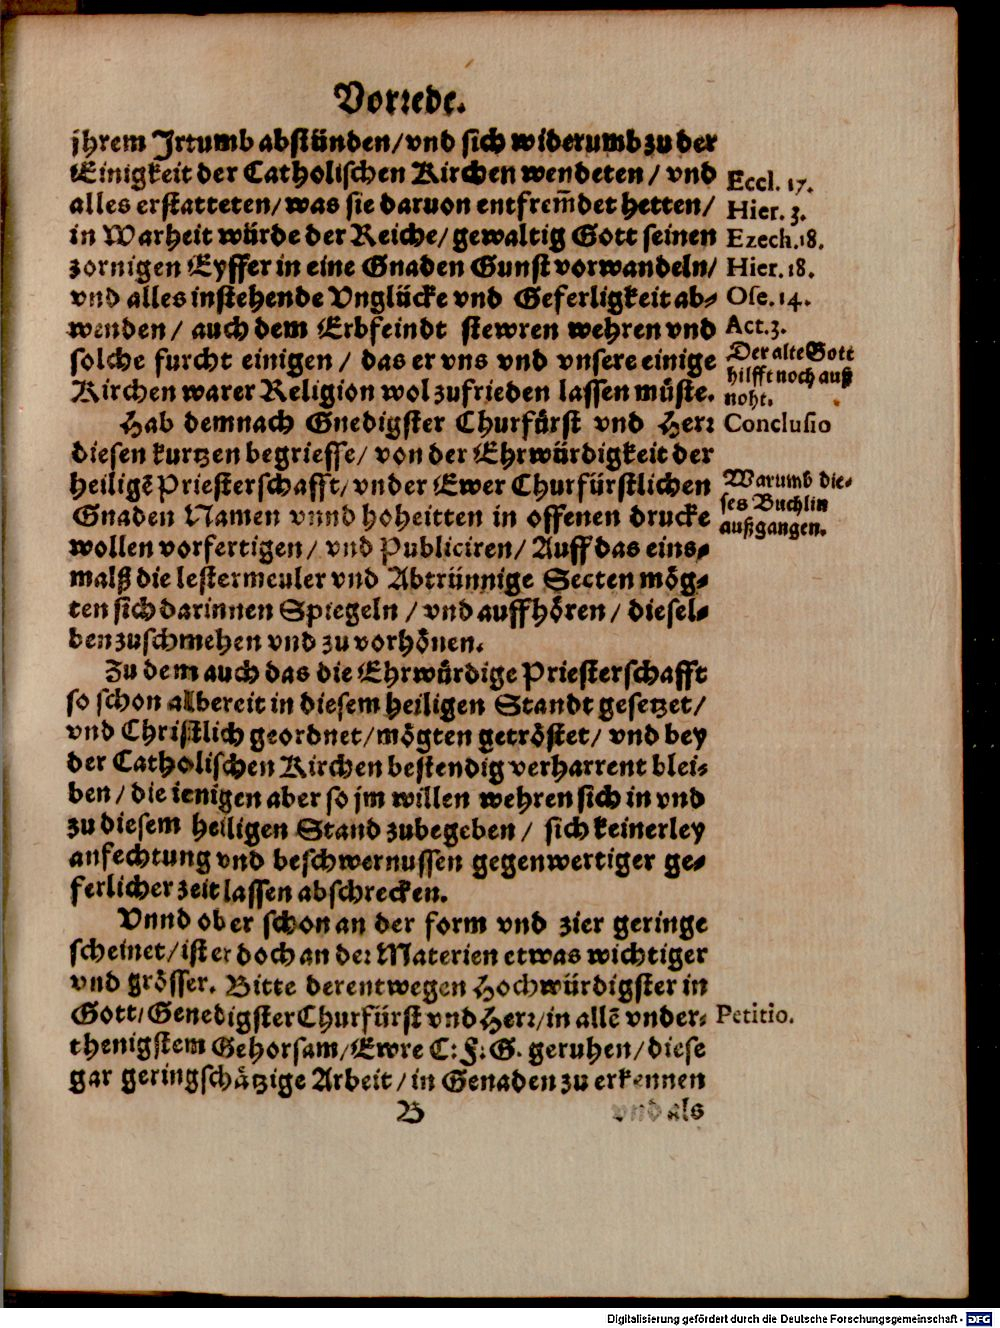 Vorrede.
jhrem Jrtumb abstünden/vnd sich widerumb zu der
Einigkeit der Catholischen Kirchen wendeten / vnd
alles erstatteten/ was sie daruon entfrem̃det hetten/
in Warheit würde der Reiche/ gewaltig Gott seinen
zornigen Eyffer in eine Gnaden Gunst vorwandeln/
vnd alles instehende Vnglücke vnd Geferligkeit ab-
wenden / auch dem Erbfeindt stewren wehren vnd
solche furcht einigen / das er vns vnd vnsere einige
Kirchen warer Religion wol zufrieden lassen müste.
Eccl. 17.
Hier. 3.
Ezech. 18.
Hier. 18.
Ose. 14.
Act. 3.
Der alte Gott
hilfft noch auß
noht.
Hab demnach Gnedigster Churfürst vnd Herr
diesen kurtzen begriesse/ von der Ehrwürdigkeit der
heiligẽ Priesterschafft/ vnder Ewer Churfürstlichen
Gnaden Namen vnnd hoheitten in offenen drucke
wollen vorfertigen/ vnd Publiciren/ Auff das eins-
malß die lestermeuler vnd Abtrünnige Secten mög-
ten sich darinnen Spiegeln / vnd auffhören / diesel-
ben zuschmehen vnd zu vorhönen.
Conclusio
Warumb die-
ses Buchlin
außgangen.
Zu dem auch das die Ehrwürdige Priesterschafft
so schon allbereit in diesem heiligen Standt gesetzet/
vnd Christlich geordnet/ mögten getröstet/ vnd bey
der Catholischen Kirchen bestendig verharrent blei-
ben / die ienigen aber so jm willen wehren sich in vnd
zu diesem heiligen Stand zubegeben / sich keinerley
anfechtung vnd beschwernussen gegenwertiger ge-
ferlicher zeit lassen abschrecken.
Vnnd ob er schon an der form vnd zier geringe
scheinet/ ist er doch an der Materien etwas wichtiger
vnd grösser. Bitte derentwegen Hochwürdigster in
Gott/ Genedigster Churfürst vnd Herr/ in allẽ vnder-
thenigstem Gehorsam/ Ewre C: F: G. geruhen/ diese
gar geringschätzige Arbeit / in Genaden zu erkennen
Petitio.
B
vnd als
Digitalisierung gefördert durch die Deutsche Forschungsgemeinschaft - DFG